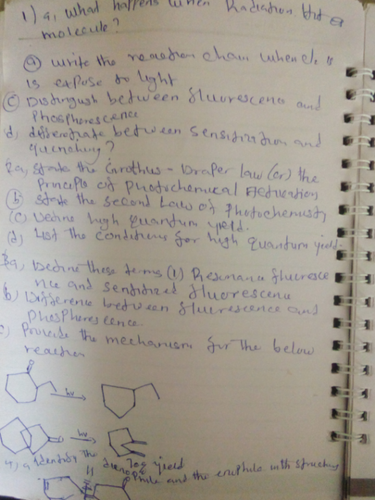 1) a, What happens when Radiation hit a
molecule?
Write the reaction chain when cl2 is
is expose to light
(C) Distinguish between fluorescence and
Phosphorescence
d, differentiate between Sensitization and
quenching?
2a, state the Grothus - Draper law (or) the
Principle of photochemical Activation
(b) state the second Law of Photochemistry
(c) Define high quantum yield.
(d) List the conditions for high quantum yield.
3a, Define these terms (1) Resonance fluoresce
nce and sensitized fluorescence
b) Difference between fluorescence and
phosphorescence
c) Provide the mechanism for the below
reaction
hv
hv
yield
4, a Identify the and the enophile with structures